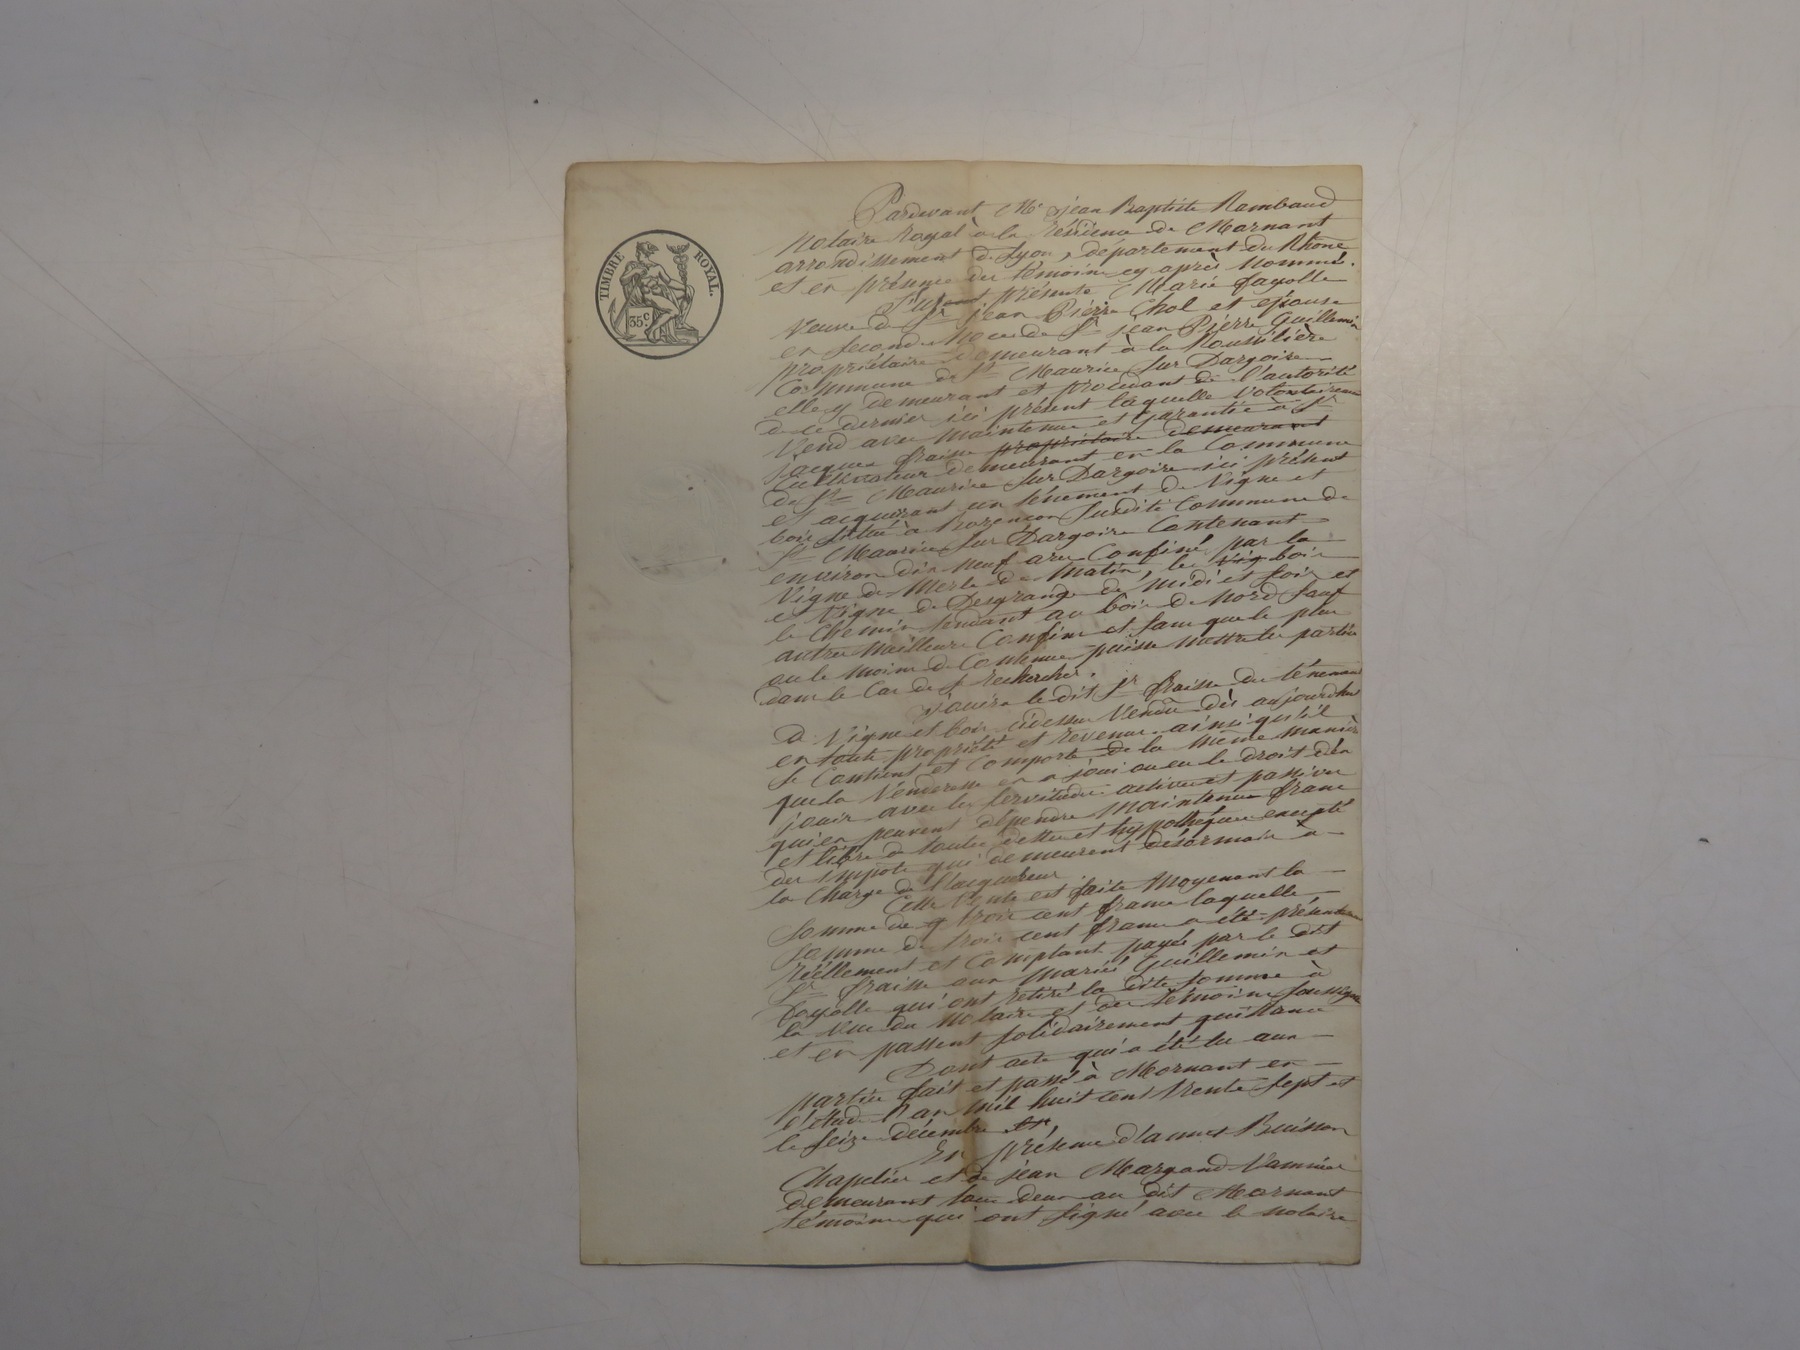 TIMBRE ROYAL.
35 c.
Pardevant Me jean Baptiste Rambaud
Notaire Royal à la résidence de Mornant
arrondissement de Lyon, département du Rhône
et en présence des témoins cy après Nommé.
présente Marie fayolle
Veuve de Sr jean Pierre Chol et épouse
en seconde Noce de Sr jean Pierre Guillemin
propriétaire demeurant à la Roussilière
Commune de St Maurice Sur Dargoire
elle y demeurant et procédant de l'autorité
de ce dernier ici présent laquelle Volontairement
Vend avec maintenue et garantie à Sr
jacques fraisse propriétaire demeurant
Cultivateur demeurant en la Commune
de St Maurice Sur Dargoire ici présent
et acquérant un ténement de Vigne et
bois situé à Susdite Commune de
St Maurice Sur Dargoire Contenant
environ dix neuf ares Confiné par la
Vigne de Merle de Matin, les Vig bois
et Vigne de Desgrange de midi et soir et
le Chemin tendant au bois de Nord sauf
autres meilleurs Confins et sans que le plus
ou le moins de Contenue puisse Nottre les parties
dans le Cas de se rechercher.
jouira le dit Sr fraisse du ténement
de Vigne et bois cidessus Vendu dès aujourdhui
en toute propriété et revenus ainsi qu'il
se Contient et Comporte de la même manière
que la Venderesse en a joui ou eu le droit d'en
jouir avec les servitudes actives et passives
qui en peuvent dépendre Maintenue franc
et libre de toutes dettes et hypothèques excepté
des impots qui demeurent désormais à
la Charge de l'acquéreur
Cette Vente est faite Moyenant la
Somme de q trois cent francs laquelle
Somme de trois cent francs a été présentement
réellement et Comptant payée par le dit
Sr fraisse aux mariés Guillemin et
fayolle qui ont retiré la dite somme à
la vue du Notaire et des témoins soussignés
et en passent solidairement quittance
Dont acte qui a été lu aux
parties fait et passé à Mornant en
l'étude l'an mil huit cent trente sept et
le seize décembre
En présence d'annet Buisson
Chapelier et de jean Margand Vannier
demeurant tous deux au dit Mornant
témoins qui ont signé avec le notaire